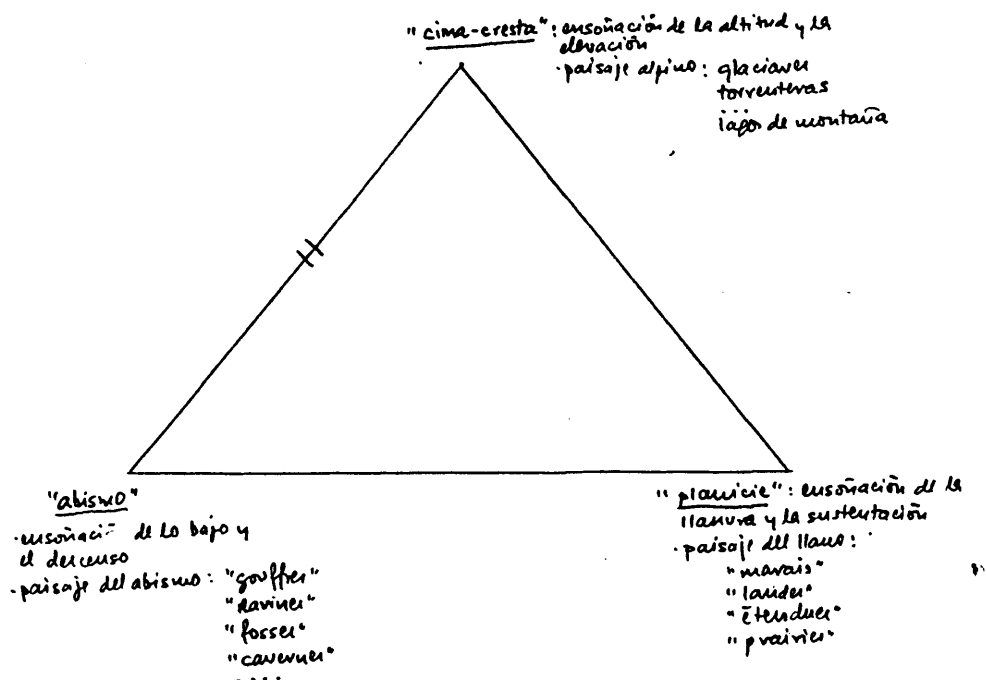 "cima-cresta": ensoñación de la altitud y la
elevación
·paisaje alpino: glaciares
torrenteras
lagos de montaña
"abismo"
·ensoñació de lo bajo y
el descenso
·paisaje del abismo: "gouffres"
"ravines"
"fosses"
"cavernes"
"planicie": ensoñación de la
llanura y la sustentación
·paisaje del llano:
"marais"
"landes"
"étendues"
"prairies"